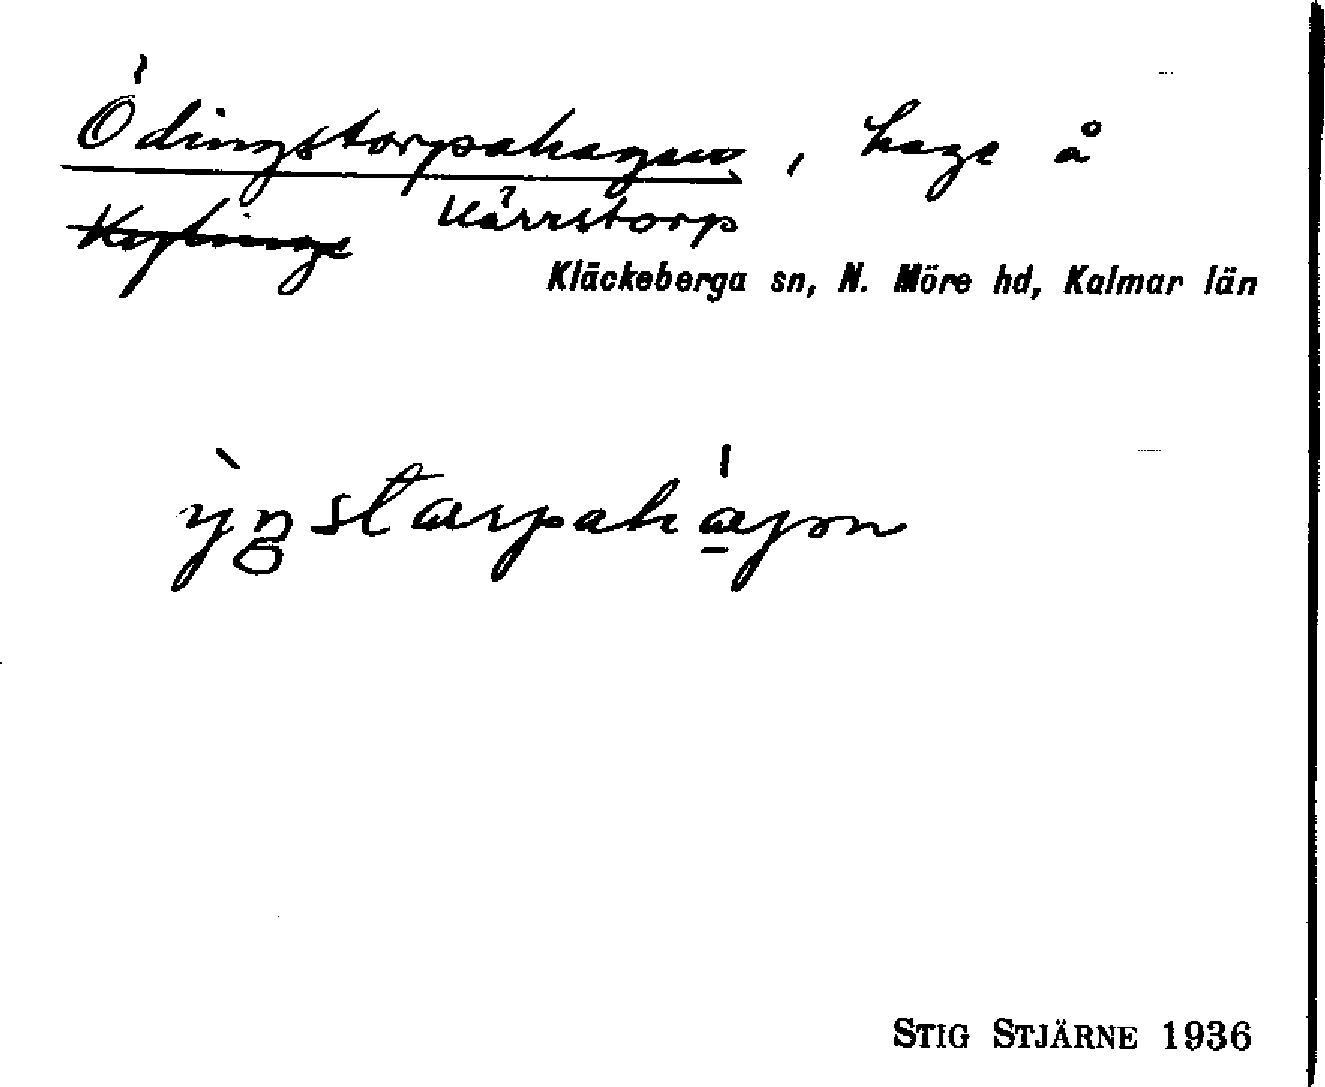 Ödingstorpahagen, hage å
Kärrstorp
Kläckeberga sn, N. Möre hd, Kalmar län
STIG STJÄRNE 1936